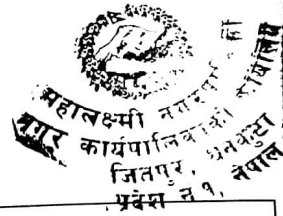 महालक्ष्मी नगरपा
नगर कार्यपालिकाको कार्यालय
जितपुर, धनकुटा
प्रदेश नं १, नेपाल